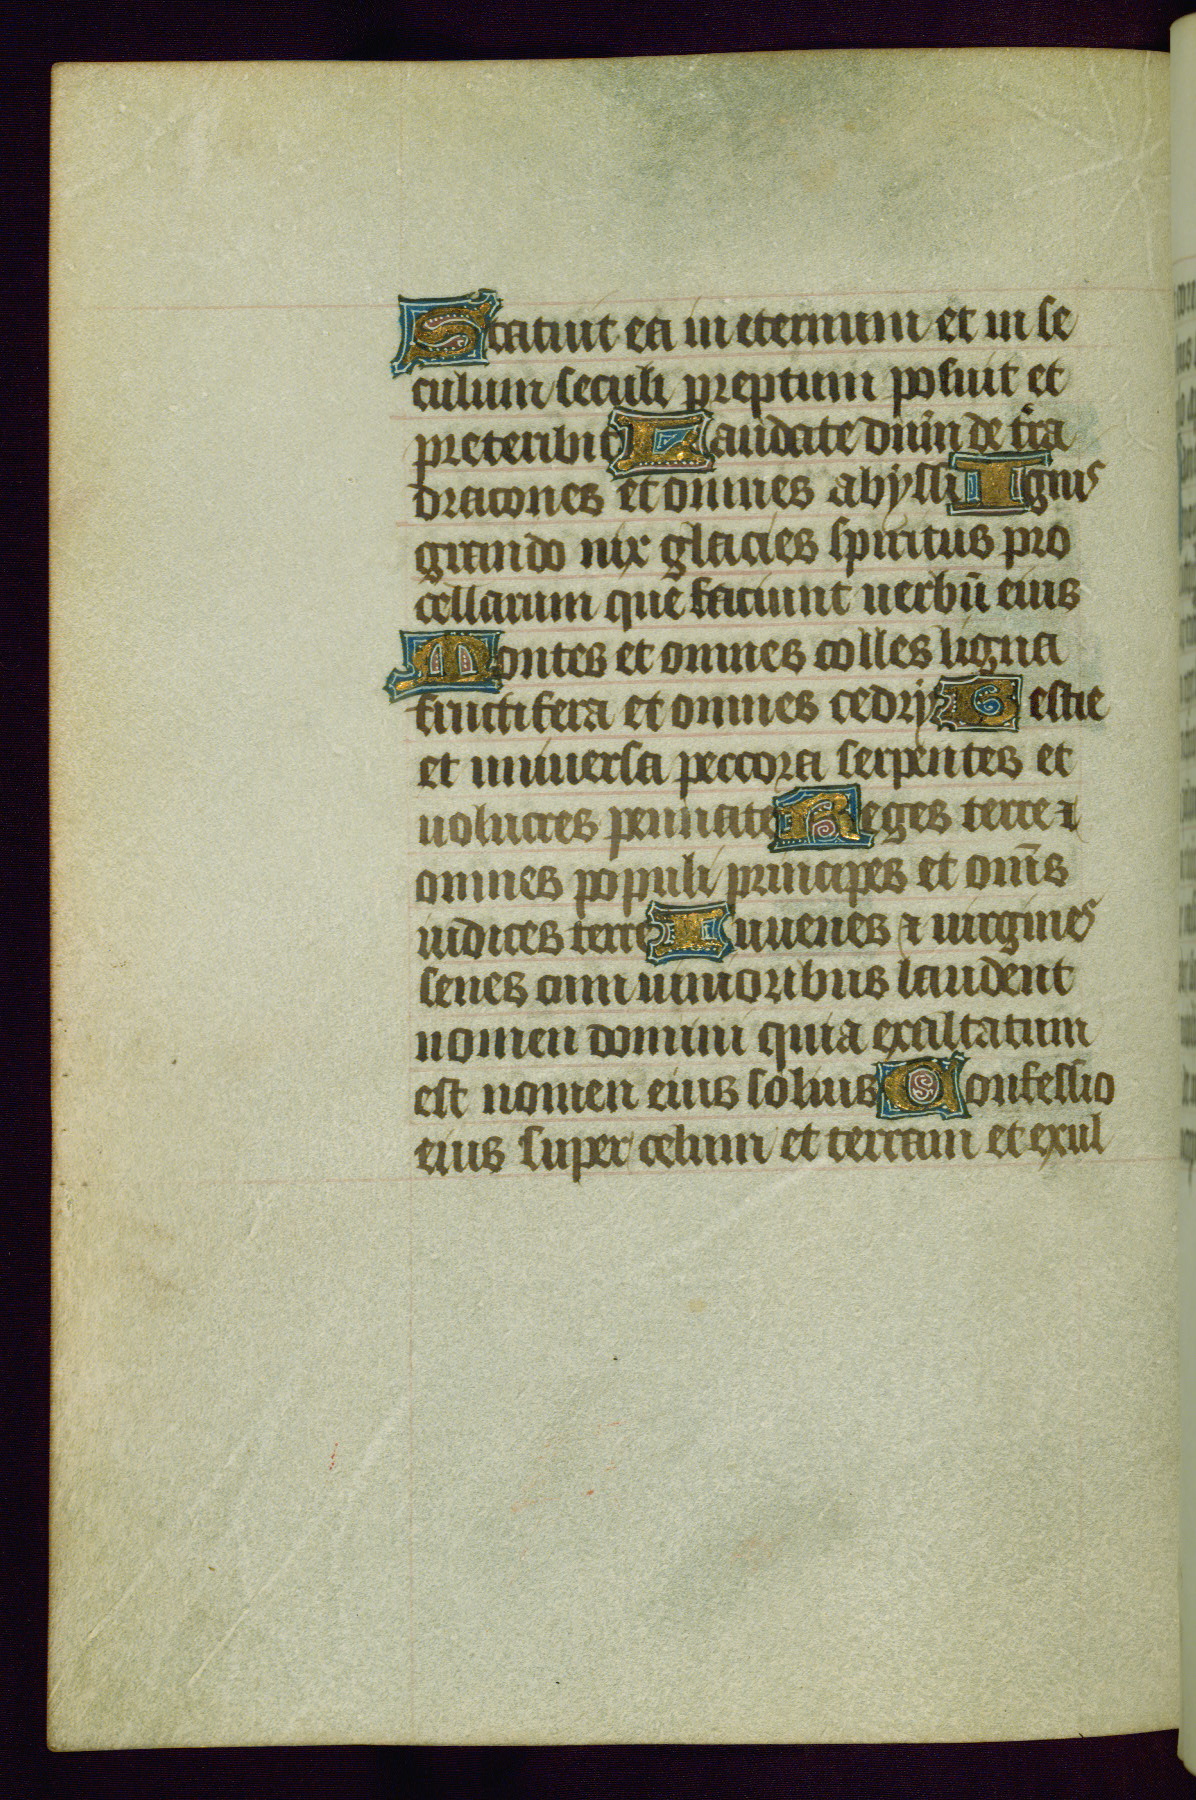 Statuit ea in eternum et in se
culum seculi preptum posuit et
preteribit Laudate dnm̄ de tr̄a
dracones et omnes abyssi Ignis
grando nix glacies spiritus pro
cellarum que faciunt uerbū eius
Montes et omnes colles ligna
fructifera et omnes cedry Bestie
et uniuersa peccora serpentes et
uolucres pennate Reges terre ⁊
omnes populi principes et om̄s
iudices terre Iuuenes ⁊ uirgines
senes cum iunioribus laudent
nomen domini quia exaltatum
est nomen eius solius Confessio
eius super celum et terram et exul